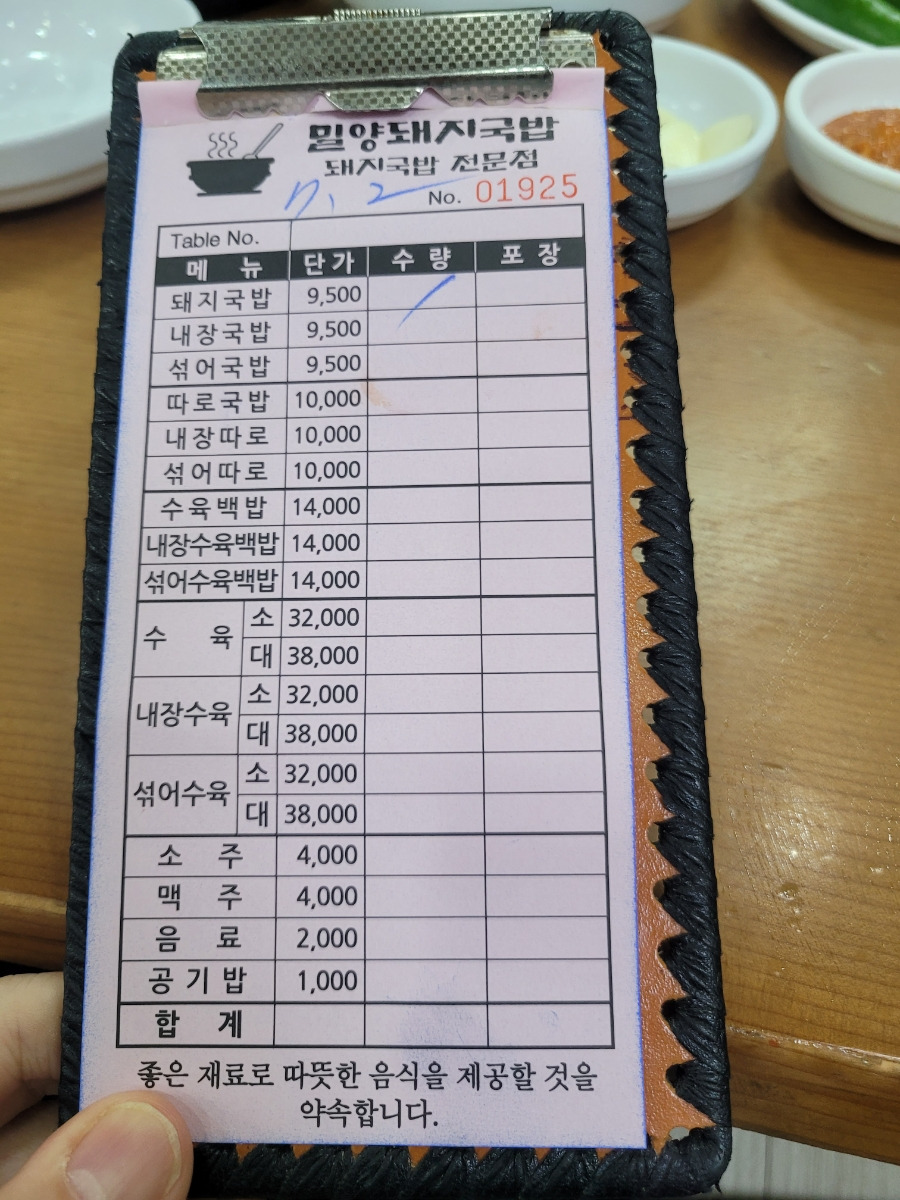 밀양돼지국밥
돼지국밥 전문점
7, 2
No. 01925
Table No.
메 뉴 단가 수 량 포 장
돼지국밥 9,500 /
내장국밥 9,500
섞어국밥 9,500
따로국밥 10,000
내장따로 10,000
섞어따로 10,000
수육백밥 14,000
내장수육백밥 14,000
섞어수육백밥 14,000
수 육 소 32,000
대 38,000
내장수육 소 32,000
대 38,000
섞어수육 소 32,000
대 38,000
소 주 4,000
맥 주 4,000
음 료 2,000
공기밥 1,000
합 계
좋은 재료로 따뜻한 음식을 제공할 것을
약속합니다.